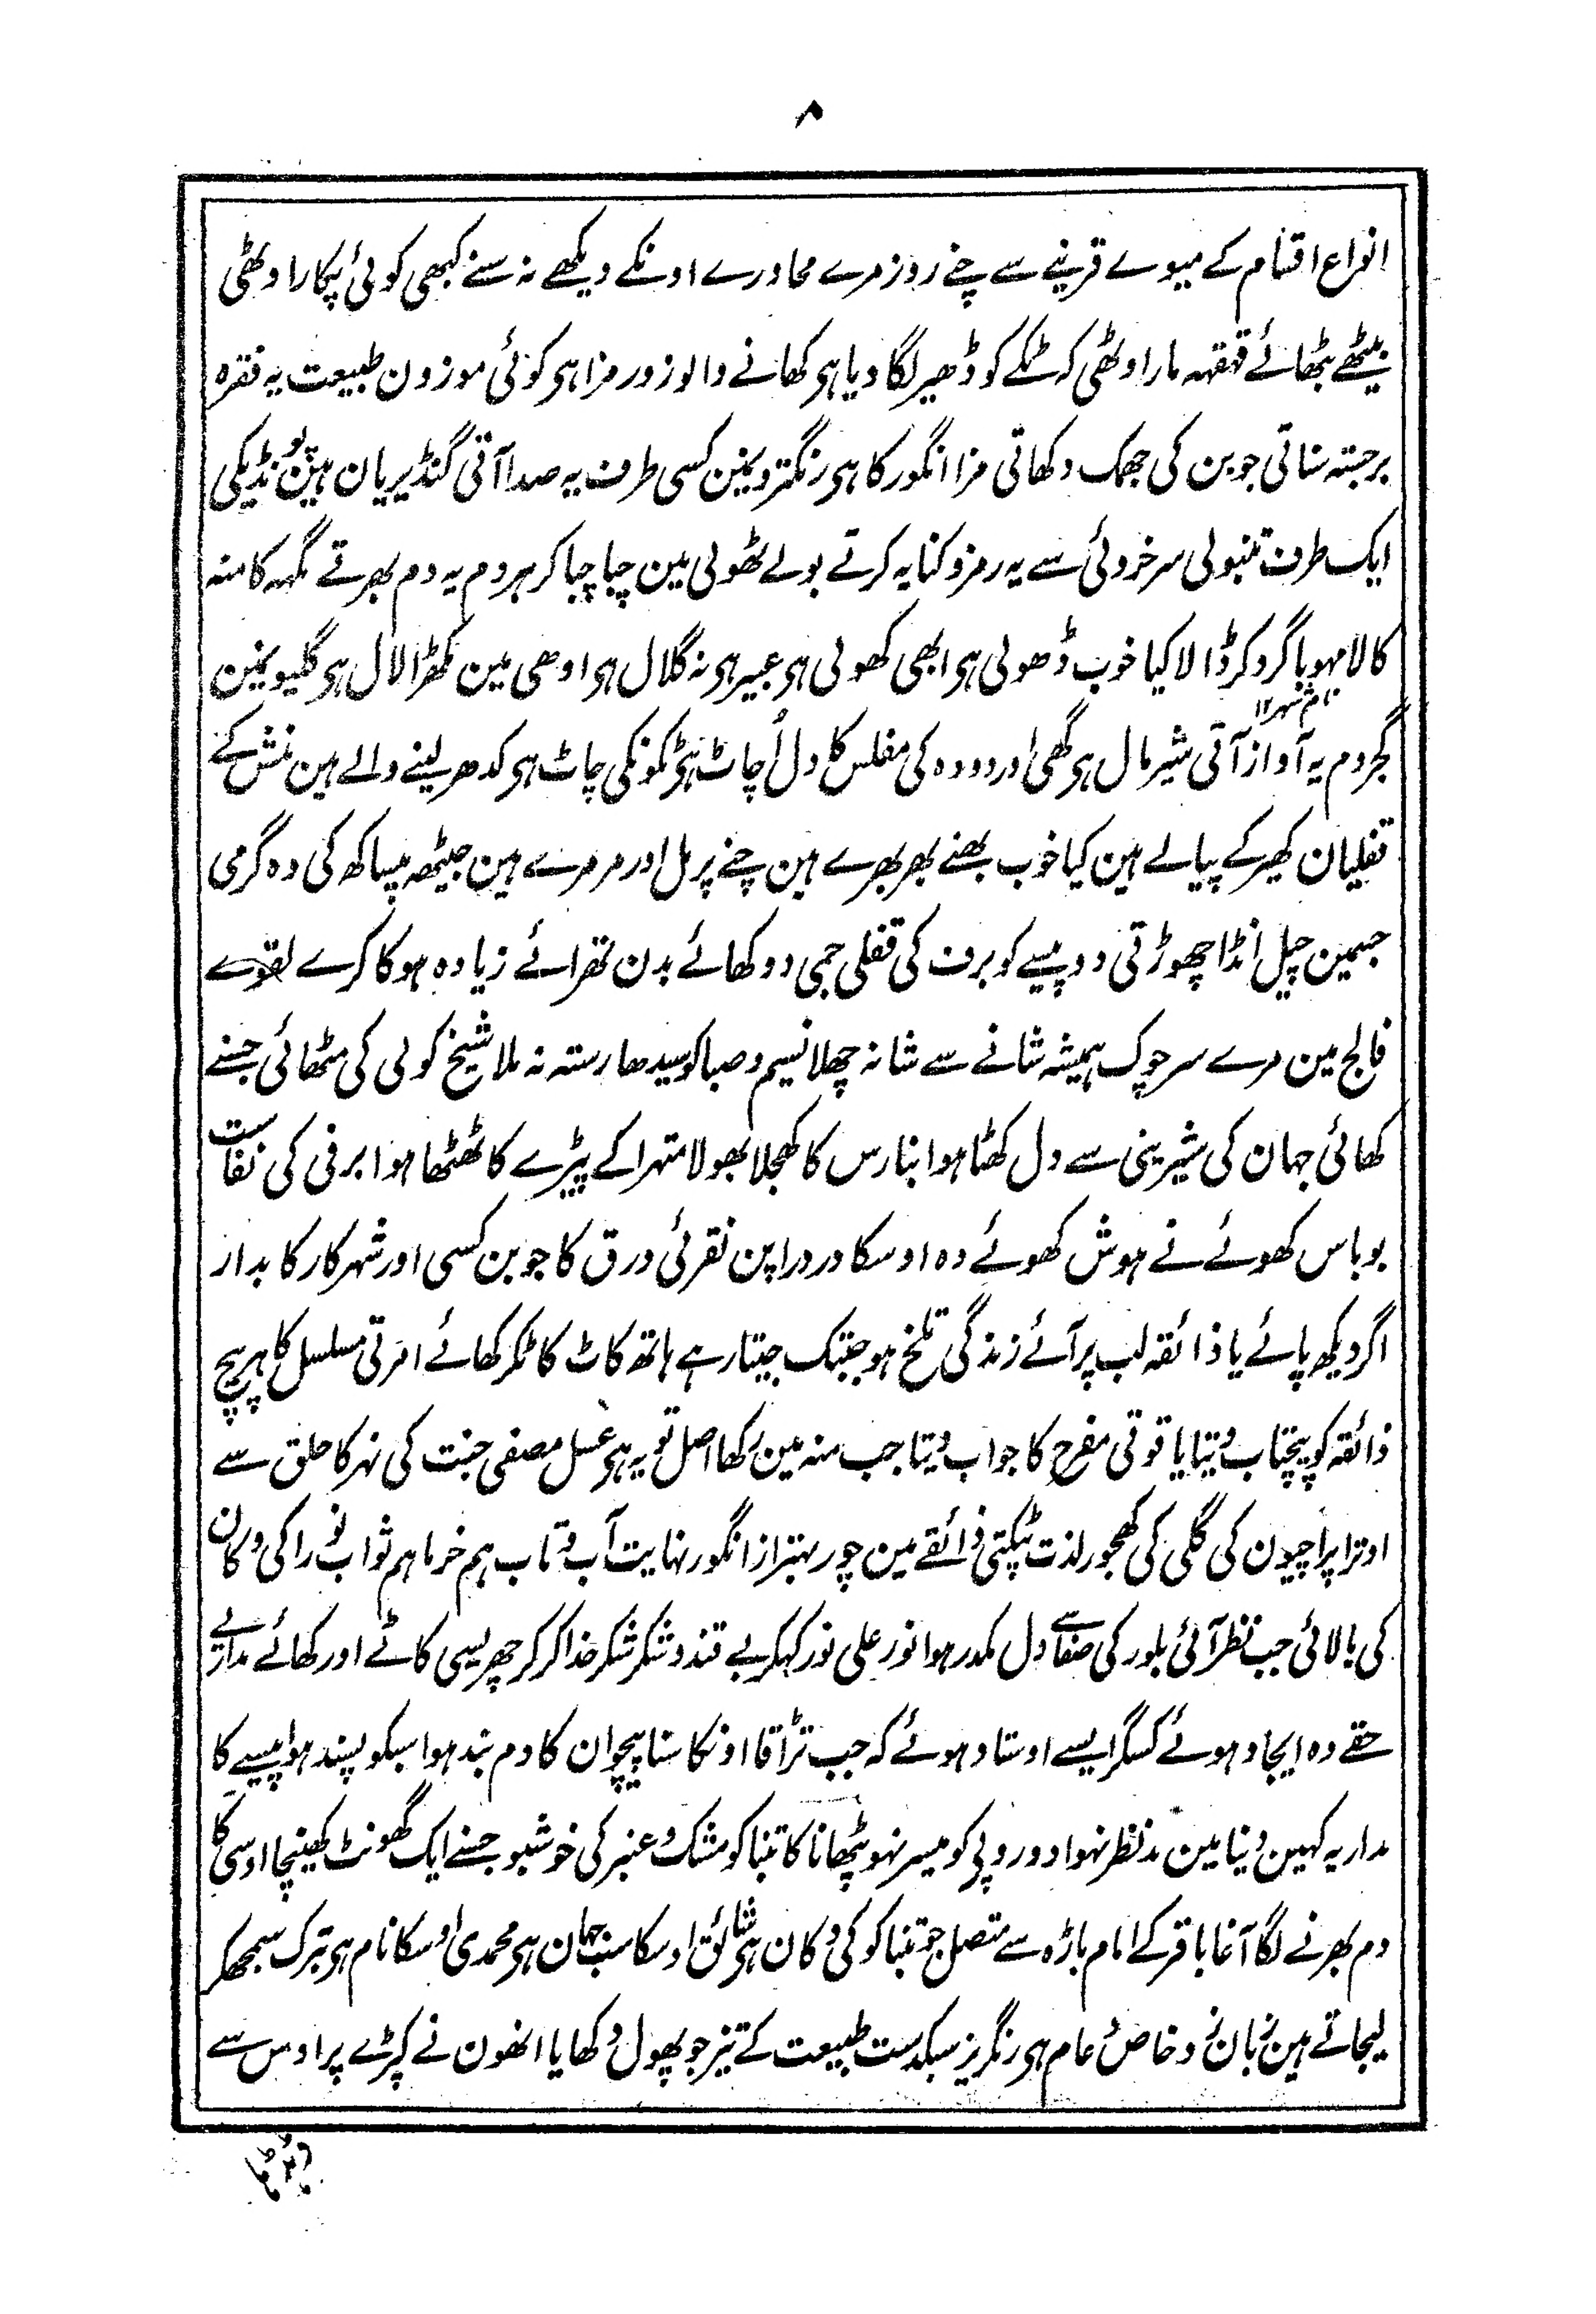 ۸
انواع اقسام کے میوے قرینے سے چنے روز مرے محاورے اونکے دیکھے نہ سنے کبھی کوئی پکار اوٹھی
بیٹھے بٹھائے قہقہہ مار اوٹھی کہ ٹکے کو ڈھیر لگا دیا ہی کھانے والو زور مزا ہی کوئی موزون طبیعت یہ فقرہ
برجستہ سناتی جوبن کی جھمک دکھاتی مزا انگور کا ہی رنگترونمین کسی طرف یہ صدا آتی گنڈیریان ہین پونڈیکی
ایک طرف تنبولی سرخروئی سے یہ رمز و کنایہ کرتے بولے ٹھولی مین چبا چبا کر ہر دم یہ دم بھرتے مگہہ کا منہ
کالا مہوبا گرد کر ڈالا کیا خوب ڈھولی ہی ابھی کھولی ہی عبیر ہی نہ گلال ہی اودھی مین مکھڑا لال ہی گلیونمین
نام شہر ۱۲
گجردم یہ آواز آتی شیرمال ہی گھی اور دودہ کی مفلس کا دل اُچاٹ ہی ٹکونکی چاٹ ہی کدھر لینے والے ہین نمش کے
قفلیان کھیر کے پیالے ہین کیا خوب بھنے بھربھرے ہین چنے پرمل اور مرمرے ہین جیٹھ بیساکھ کی وہ گرمی
جسمین چیل انڈا چھوڑتی دو پیسے کو برف کی قفلی جمی دو کھائے بدن تھرائے زیادہ ہوکا کرے لقوے
فالج مین مرے سر چوک ہمیشہ شانے سے شانہ چھلا نسیم و صبا کو سیدھا رستہ نہ ملا شیخ کولی کی مٹھائی جسنے
کھائی جہان کی شیرینی سے دل کھٹا ہوا بنارس کا کھجلا بھولا متہرا کے پیڑے کا ٹھٹھا ہوا برفی کی نفاست
بو باس کھوئے نے ہوش کھوئے وہ اوسکا دردرا پن نقرئی ورق کا جوبن کسی اور شہر کا رکابدار
اگر دیکھ پائے یا ذائقہ لب پر آئے زندگی تلخ ہو جبتک جیتا رہے ہاتھ کاٹ کاٹکر کھائے امرتی مسلسل کا ہر پیچ
ذائقہ کو پیچتاب دیتا یاقوتی مفرح کا جواب دیتا جب منہ مین رکھا اصل تو یہ ہی عسل مصفی جنت کی نہر کا حلق سے
اوترا پراچیون کی گلی کی کھجور لذت ٹپکتی ذائقے مین چور بہتر از انگور نہایت آب و تاب ہم خرما ہم ثواب نورا کی دکان
کی بالائی جب نظر آئی بلور کی صفا سے دل مکدر ہوا نور علی نور کہکر بے قند و شکر شکر خدا کر کر چھری سی کاٹے اور کھائے مداریے
حقے وہ ایجاد ہوئے کسگر ایسے اوستاد ہوئے کہ جب تڑاقا اونکا سنا پیچوان کا دم بند ہوا سبکو پسند ہوا پیسے کا
مداریہ کہین دنیا مین مدنظر نہوا دو روپے کو میسر نہو پٹھانا کا تنباکو مشک و عنبر کی خوشبو جسنے ایک گھونٹ کھینچا اوسی کا
دم بھرنے لگا آغا باقر کے امام باڑہ سے متصل جو تنباکو کی دکان ہی شائق اوسکا سب جہان ہی محمدی اوسکا نام ہی تبرک سمجھکر
لیجاتے ہین زبان زد خاص و عام ہی رنگریز سبکدست طبیعت کے تیز جو پھول دکھایا انھون نے کپڑے پر اوس سے